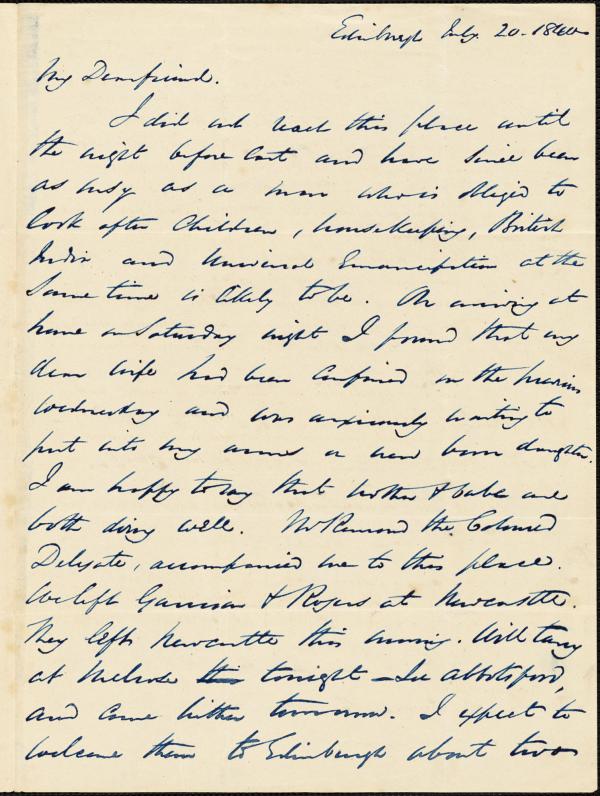 Edinburgh July. 20. 1840
My Dear friend.
I did not reach this place until
the night before last and have since been
as busy as a man who is obliged to
look after Children, housekeeping, British
India and Universal Emancipation at the
same time is likely to be. On arriving at
home on Saturday night I found that my
dear wife had been confined on the previous
Wednesday and was anxiously waiting to
put into my arms a new born daughter.
I am happy to say that mother & babe are
both doing well. Mr Remond the Coloured
Delegate, accompanied me to this place.
We left Garrison & Rogers at Newcastle.
They left Newcastle this morning. Will tarry
at Melrose this tonight – See Abbotsford,
and come hither tomorrow. I expect to
welcome them to Edinburgh about two